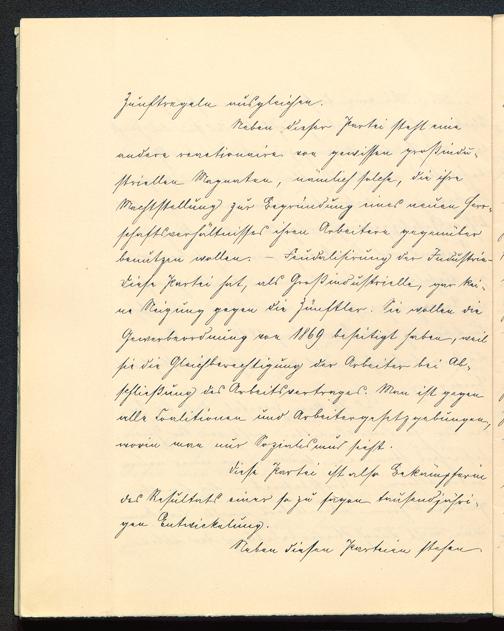 Zunftregeln ausgleichen.
Neben dieser Partei steht eine
andere reactionaire von gewissen großindu-
striellen Magnaten, nämlich solche, die ihre
Machtstellung zur Begründung eines neuen Herr-
schaftsverhältnisses ihren Arbeitern gegenüber
benutzen wollen. – Feudalisirung der Industrie.
Diese Partei hat, als Großindustrielle, gar kei-
ne Neigung gegen die Zünftler. Sie wollen die
Gewerbeordnung von 1869 beseitigt haben, weil
sie die Gleichberechtigung der Arbeiter bei Ab-
schließung des Arbeitsvertrages. Man ist gegen
alle Coalitionen und Arbeitergesetzgebungen,
worin man nur Sozialismus sieht.
Diese Partei ist also Bekämpferin
des Resultats einer so zu sagen tausendjähri-
gen Entwickelung.
Neben diesen Parteien stehen